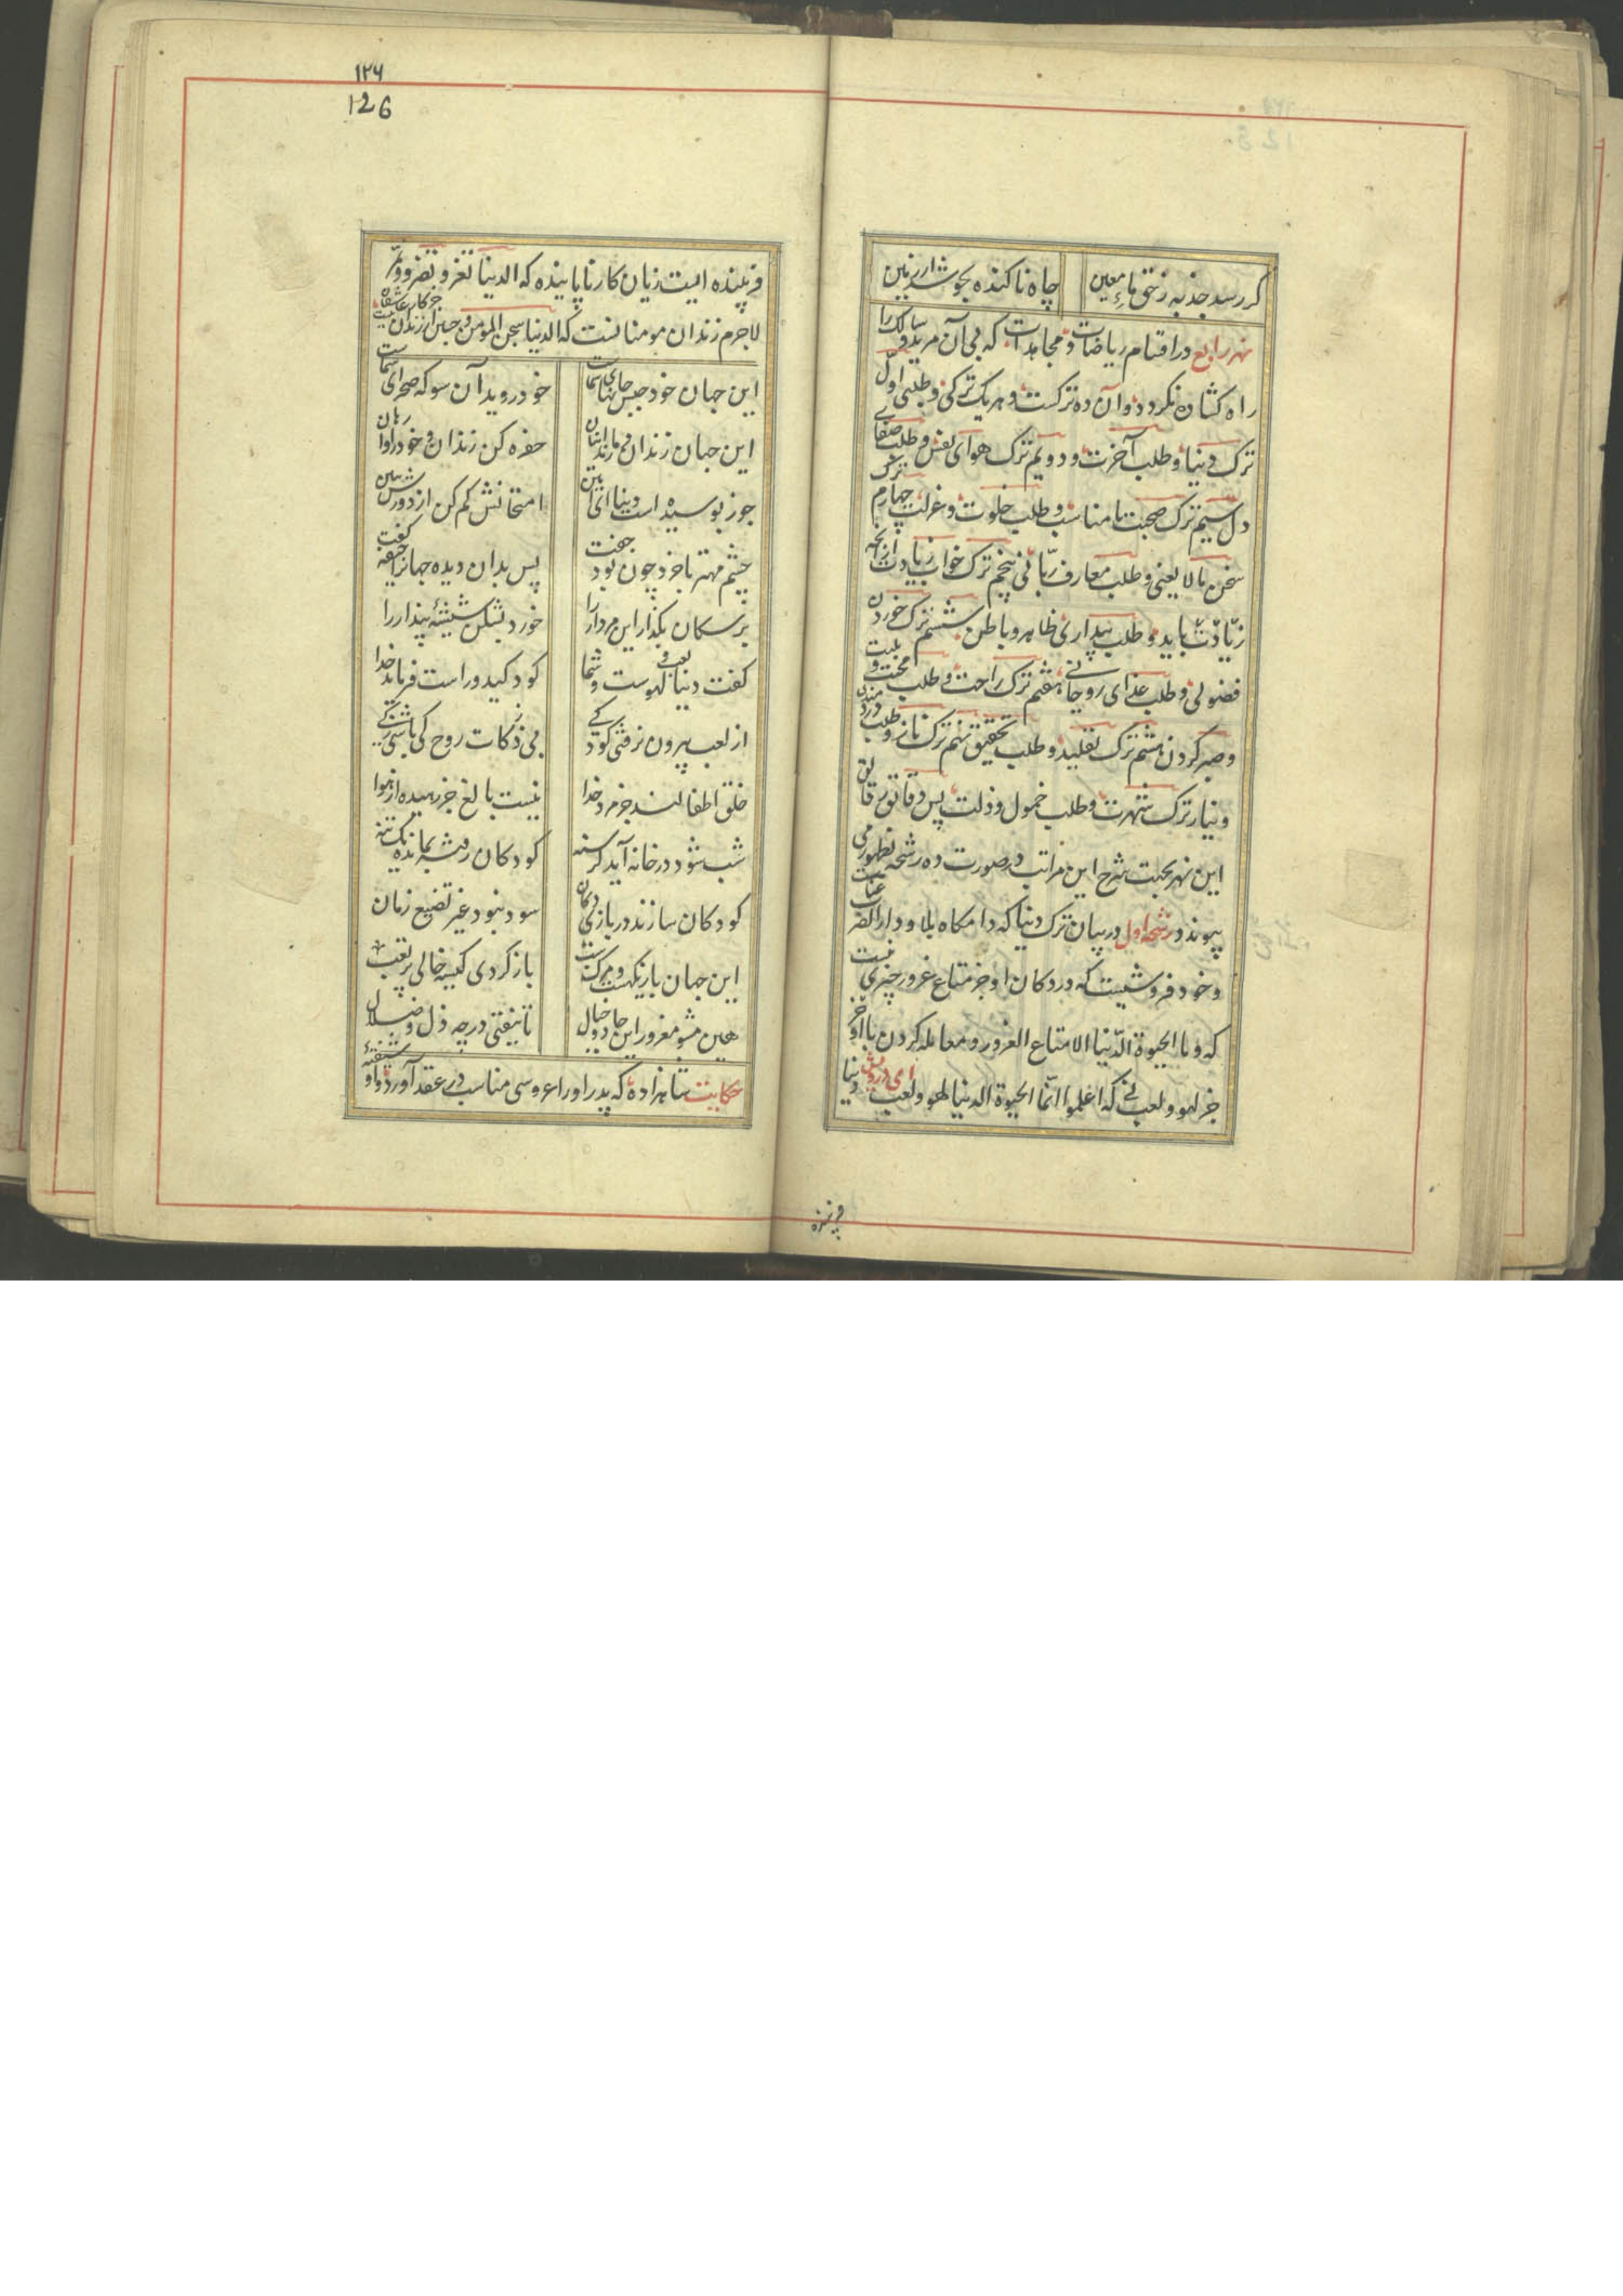 گر رسد جذبه زحق ماء معین چاه ناکنده بجوشد از زمین
نهر رابع در اقسام ریاضات و مجاهدات که بی آن مرید و سالک را
راه کشاده نکردد و آن ده ترکست و هر یک ترکی و طلبی اول
ترک دنیا و طلب آخرت و دویم ترک هوای نفس و طلب صفای
دل سیم ترک صحبت نامناسب و طلب خلوت و عزلت چهارم ترک
سخن مالا یعنی و طلب معارف ربانی پنجم ترک خواب زیادت از آنچه
زیادت باید و طلب بیداری ظاهر و باطن ششم ترک خوردن
فضولی و طلب غذای روحانی هفتم ترک راحت و طلب محنت و بلیت
و صبر کردن هشتم ترک تقلید و طلب تحقیق نهم ترک ناز و طلب دردمندی
و نیاز ترک شهرت و طلب خمول و ذلت پس دقایق رقایق
این نهر بجهت شرح این مراتب در صورت ده رشحه بظهور می
پیوندد رشحه اول در بیان ترک دنیا که دامکاه بلا و دار الضر
و خود فروشیست که در دکان او جز متاع غرور چیزی نیست
که و ما الحیوة الدنیا الا متاع الغرور و معامله کردن با او آخر
جز لهو و لعب نی که اعلموا انما الحیوة الدنیا لهو و لعب ای درویش دنیا
فریبنده
۱۲۶
126
فریبنده ایست زیان کار ناپاینده که الدنیا تغر و تضر و تمر
لاجرم زندان مومنانست که الدنیا سجن المومن و جبن از زندان جز کار عاشقان نیست
این جهان خود حبس جانهای شماست خود روید آن سو که صحرای شماست
این جهان زندان و ما زندانیان حفره کن زندان و خود را وا رهان
جوز بوسیده است دنیا ای امین امتحانش کم کن از دورش ببین
چشم مهتر با خرد چون بود جفت پس بدان دیده جهانرا جیفه گفت
بر سکان بگذار این مردار را خورد بشکن شیشه پندار را
گفت دنیا لعب و لهوست و شما کودکید و راست فرماید خدا
از لعب بیرون نرفتی کودکی بی ذکات روح کی باشی زکی
خلق اطفالند جز مرد خدا نیست بالغ جز رهیده از هوا
شب شود در خانه آید کرسنه کودکان رفته بمانده یک تنه
کودکان سازند در بازی دکان سود نبود غیر تضییع زمان
این جهان بازیکهست و مرگ شب بازکردی کیسه خالی پر تعب
هین مشو مغرور این جاه و جمال تا نیفتی در چه ذل و ضلال
حکایت شاهزاده که پدر او را عروسی مناسب در عقد آورد و او شیفته